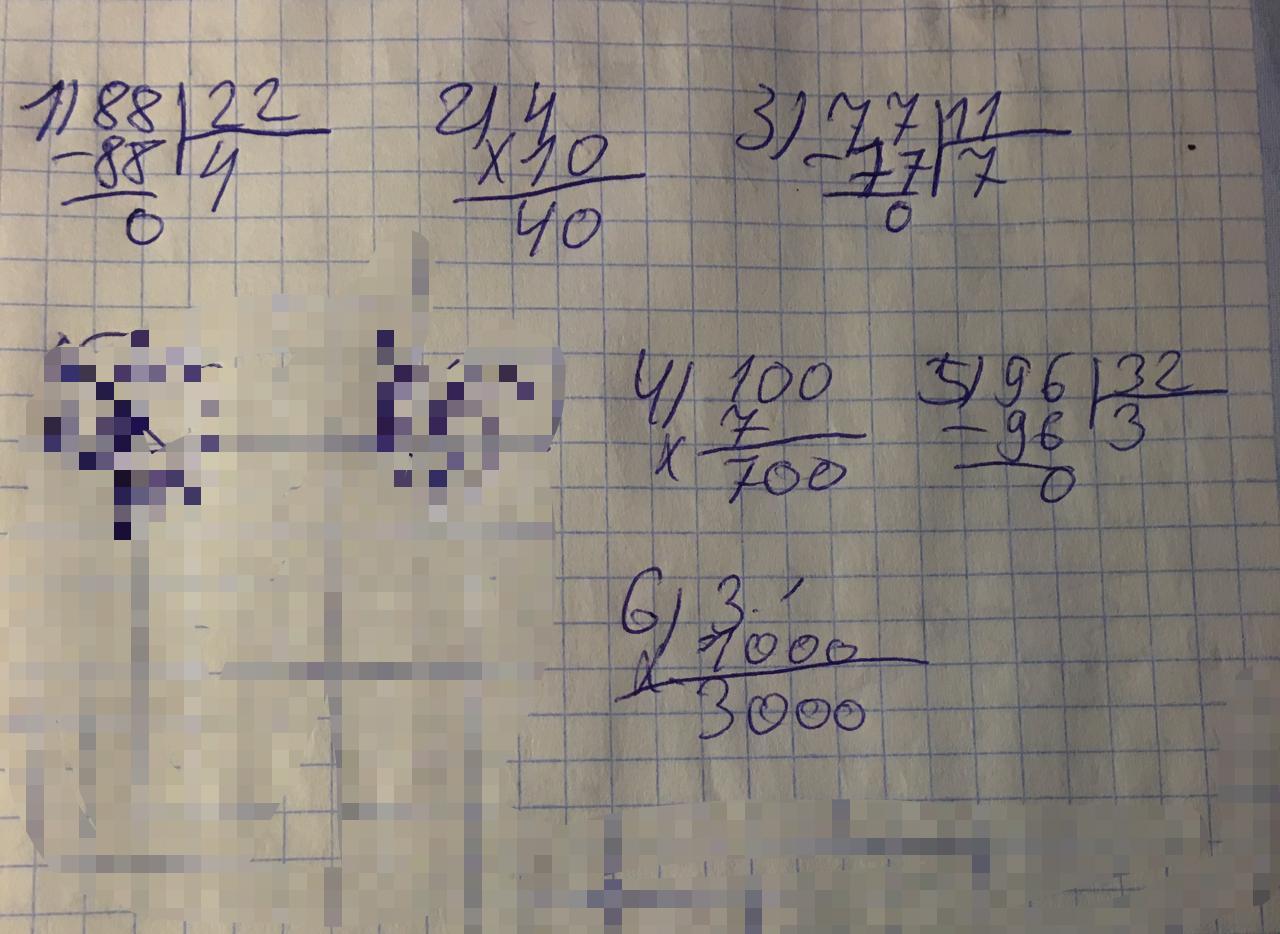 1) 88 | 22
-88 | 4
0
2) 4
x 10
40
3) 77 | 11
-77 | 7
0
4) 100
x 7
700
5) 96 | 32
-96 | 3
0
6) 3
x 1000
3000